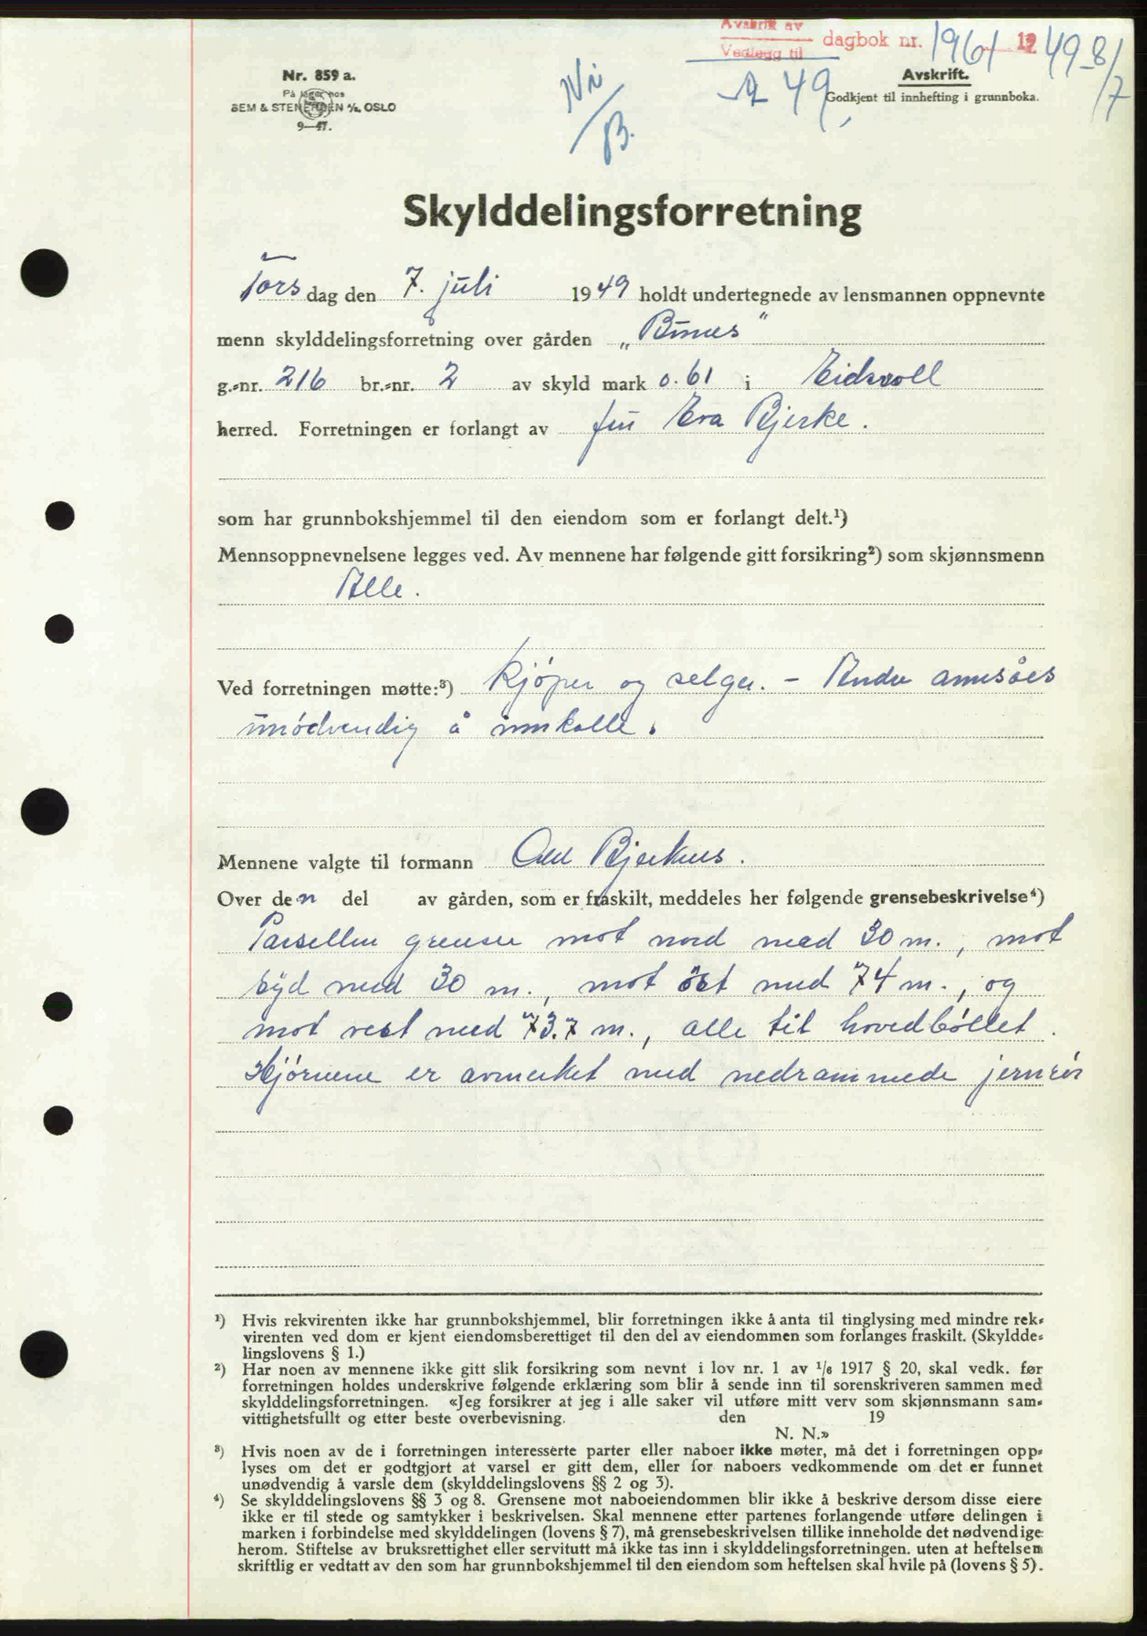 Avskrift av
Vedlegg til dagbok nr. 1961 1949 8/7
Nr. 859 a.
På lager hos
SEM & STENERSEN A/S, OSLO
9—47.
A 49
Avskrift.
Godkjent til innhefting i grunnboka.
Skylddelingsforretning
Tors dag den 7. juli 1949 holdt undertegnede av lensmannen oppnevnte
menn skylddelingsforretning over gården
g.-nr. 216 br.-nr. 2 av skyld mark 0.61 i Eidsvoll
herred. Forretningen er forlangt av fru Eva Bjerke.
som har grunnbokshjemmel til den eiendom som er forlangt delt.¹)
Mennsoppnevnelsene legges ved. Av mennene har følgende gitt forsikring²) som skjønnsmenn
Alle.
Ved forretningen møtte:³) Kjøper og selger. - Andre ansåes
unødvendig å innkalle.
Mennene valgte til formann Odd Bjerknes.
Over den del av gården, som er fraskilt, meddeles her følgende grensebeskrivelse⁴)
Parsellen grenser mot nord med 30 m., mot
syd med 30 m., mot öst med 74 m., og
mot vest med 73.7 m., alle til hovedbøllet.
Hjørnene er avmerket med nedrammede jernrör
¹) Hvis rekvirenten ikke har grunnbokshjemmel, blir forretningen ikke å anta til tinglysing med mindre rek-
virenten ved dom er kjent eiendomsberettiget til den del av eiendommen som forlanges fraskilt. (Skyldde-
lingslovens § 1.)
²) Har noen av mennene ikke gitt slik forsikring som nevnt i lov nr. 1 av ¹/₆ 1917 § 20, skal vedk. før
forretningen holdes underskrive følgende erklæring som blir å sende inn til sorenskriveren sammen med
skylddelingsforretningen. «Jeg forsikrer at jeg i alle saker vil utføre mitt verv som skjønnsmann sam-
vittighetsfullt og etter beste overbevisning. den 19
N. N.»
³) Hvis noen av de i forretningen interesserte parter eller naboer ikke møter, må det i forretningen opp-
lyses om det er godtgjort at varsel er gitt dem, eller for naboers vedkommende om det er funnet
unødvendig å varsle dem (skylddelingslovens §§ 2 og 3).
⁴) Se skylddelingslovens §§ 3 og 8. Grensene mot naboeiendommen blir ikke å beskrive dersom disse eiere
ikke er til stede og samtykker i beskrivelsen. Skal mennene etter partenes forlangende utføre delingen i
marken i forbindelse med skylddelingen (lovens § 7), må grensebeskrivelsen tillike inneholde det nødvendige
herom. Stiftelse av bruksrettighet eller servitutt må ikke tas inn i skylddelingsforretningen. uten at heftelsen
skriftlig er vedtatt av den som har grunnbokshjemmel til den eiendom som heftelsen skal hvile på (lovens § 5).